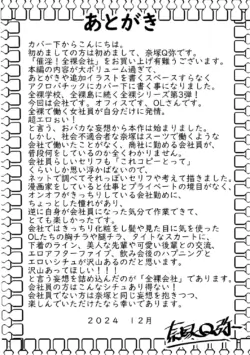 あとがき
カバー下からこんにちは。
初めましての方は初めまして、奈塚Q弥です。
「催淫!全裸会社」をお買い上げ有難うございます。
本編の内容が大ボリューム過ぎて
あとがきや追加イラストを書くスペースすらなく
アクロバチックにカバー下に書く事になりました。
全裸学校、全裸島に続く全裸シリーズ第3弾!
今回は会社です。オフィスです。OLさんです。
全裸で働く女性社員が自分だけに発情。
超エロぉい!
と言う、おバカな妄想から本作は始まりました。
しかし、社会不適合者な奈塚はスーツで働くような
会社で働いたことがなく、商社に勤める会社員が
普段何をしているのか全くわかりません。
会社員らしいセリフも「これコピとって」
くらいしか思い浮かばないので、
ネットで調べてそれっぽいセリフや考えて描きました。
漫画家をしていると仕事とプライベートの境目がなく、
オンオフがきっちりしている会社勤めに、
ちょっとした憧れがあり、
逆に自身が会社員になった気分で作業できて、
とても楽しかったです。
会社ではきっちり化粧をし髪や見た目に気を使った
OLたちの胸チラや腿チラ、タイトなスカートに、
下着のライン、美人な先輩や可愛い後輩との交流、
エロアフターファイブ、飲み会後のハプニングと
エロいシチュが沢山あるのだと思います。
沢山あってほしい!!!
と言う妄想を詰め込んだのが「全裸会社」であります。
会社員の方はこんなシチュあり得ない!
会社員でない方は奈塚と同じ妄想を抱きつつ、
楽しんでいただけたなら幸いであります。
2024 12月
奈塚Q弥